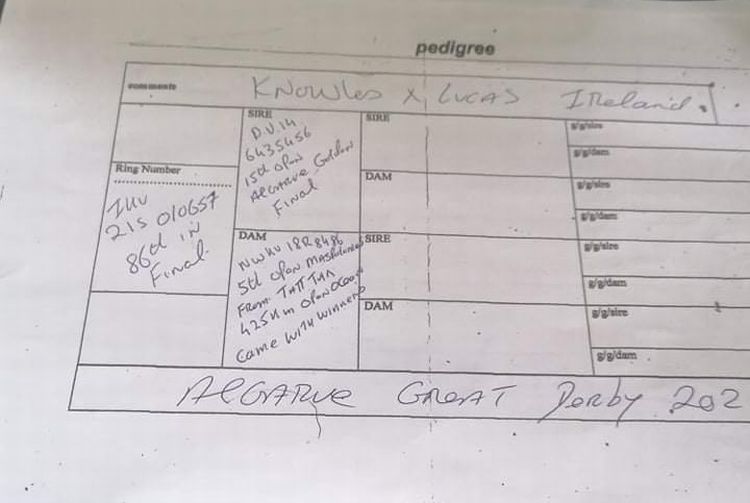 pedigree
comments
KNowles x LUCAS IReland.
SIRE
D.V.14
6435456
15th open
Algarve Golden
Final
SIRE
g/g/sire
g/g/dam
Ring Number
IHU
21S 010657
86th IN
Final
DAM
g/g/sire
g/g/dam
DAM
NWHU 18R8486
5th open
From
425Km open
Came with winners
SIRE
g/g/sire
g/g/dam
DAM
g/g/sire
g/g/dam
AlGARVE GREAT Derby 202